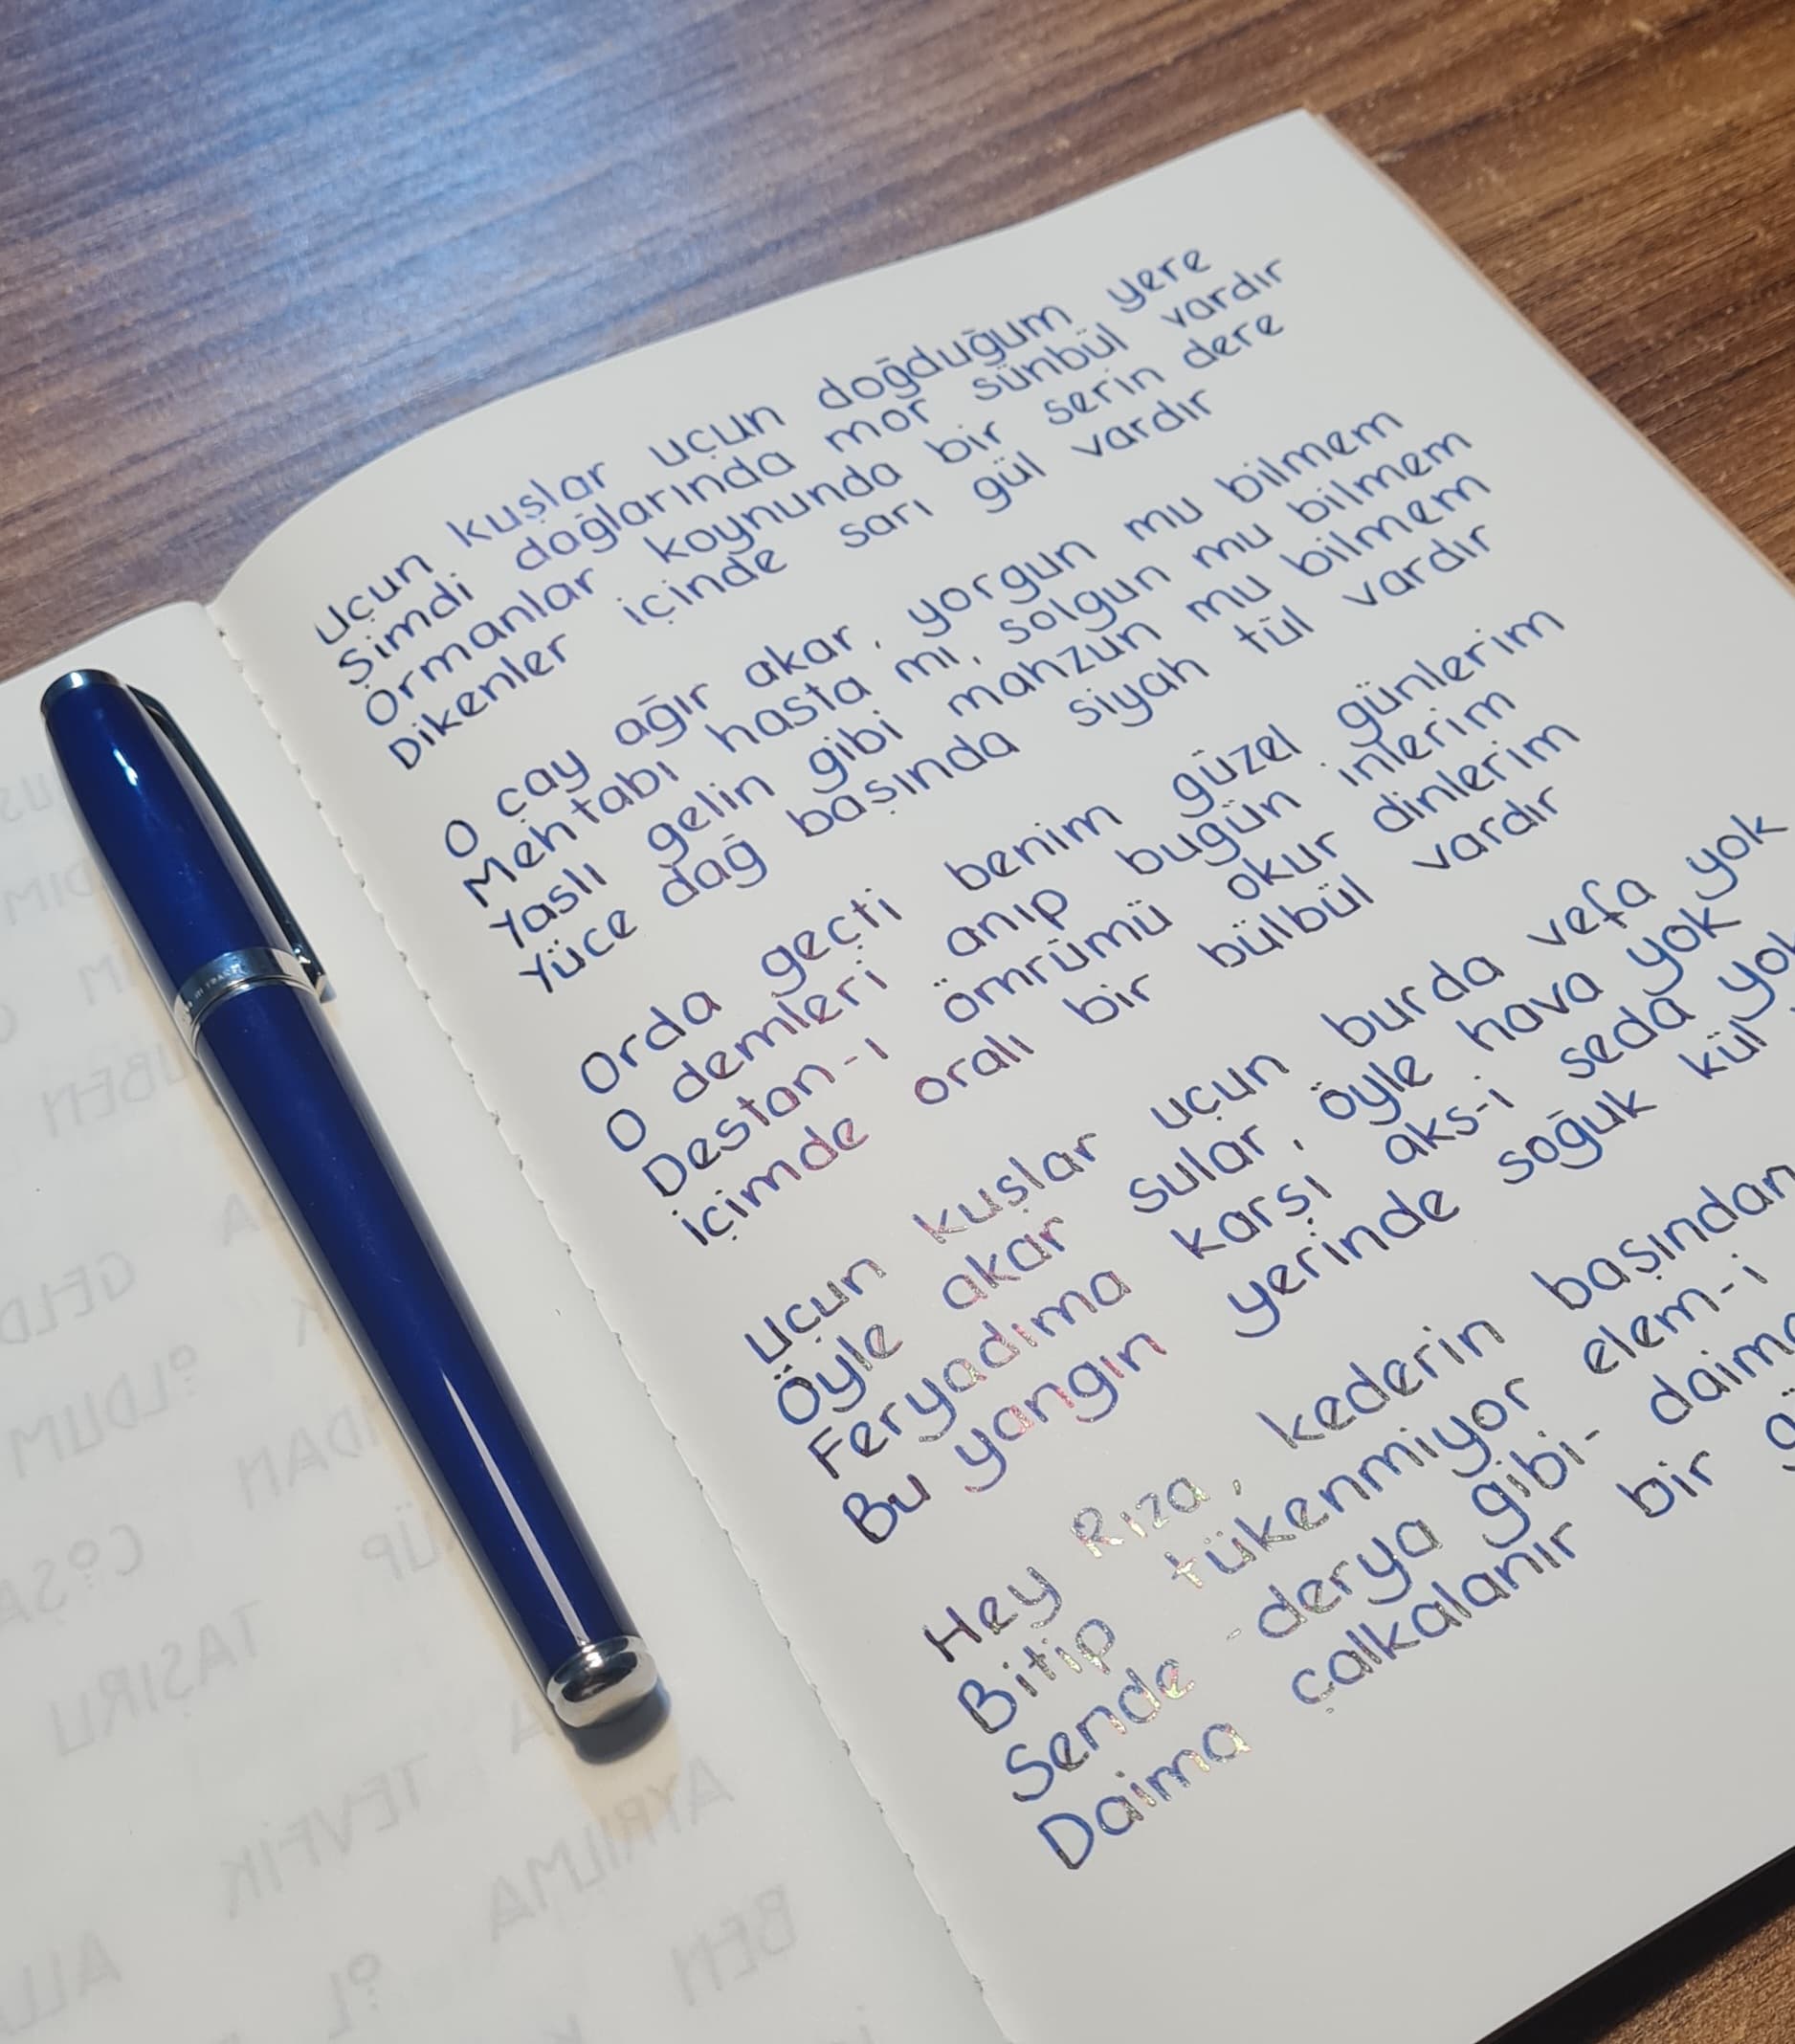 Uçun kuşlar uçun doğduğum yere
Şimdi dağlarında mor sünbül vardır
Ormanlar koynunda bir serin dere
Dikenler içinde sarı gül vardır
O çay ağır akar, yorgun mu bilmem
Mehtabı hasta mı, solgun mu bilmem
Yaslı gelin gibi mahzun mu bilmem
Yüce dağ başında siyah tül vardır
Orda geçti benim güzel günlerim
O demleri anıp bugün inlerim
Destan-ı ömrümü okur dinlerim
İçimde oralı bir bülbül vardır
Uçun kuşlar uçun burda vefa yok
Öyle akar sular, öyle hava yok
Feryadıma karşı aks-i seda yok
Bu yangın yerinde soğuk kül
Hey Rıza, kederin başından
Bitip tükenmiyor elem-i
Sende -derya gibi- daima
Daima çalkalanır bir